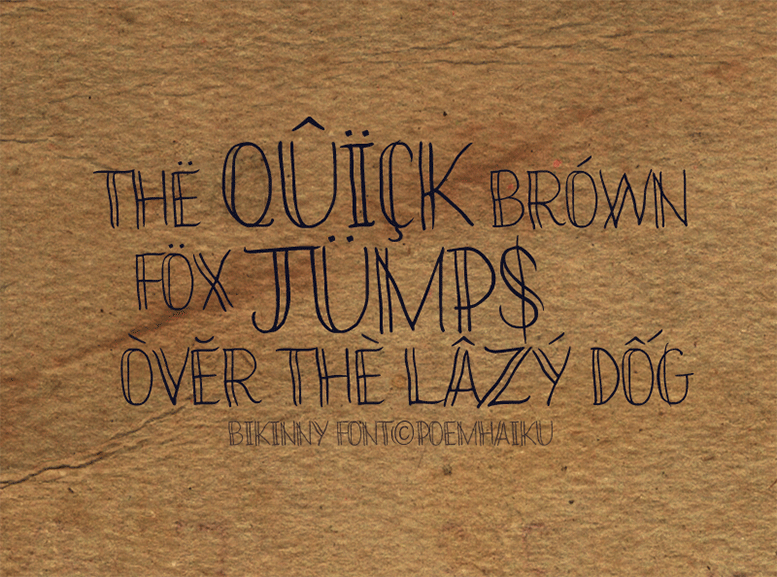 THË QÛÏÇK BRÓWN
FÖX JÜMP$
ÒVĔR THÈ LÂZÝ DỐG
BIKINNY FONT©POEMHAIKU